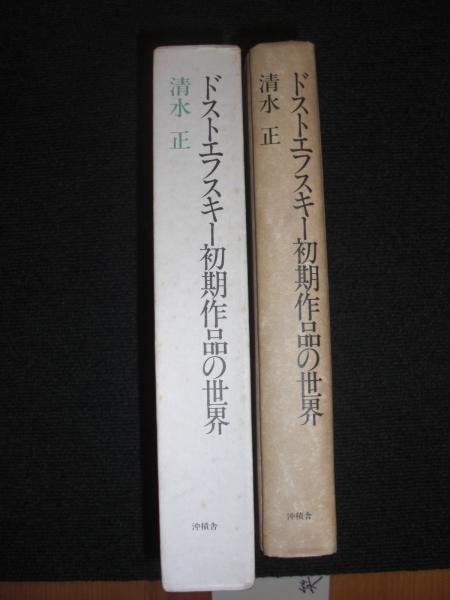 ドストエフスキー初期作品の世界
清水 正
沖積舎
ドストエフスキー初期作品の世界
清水 正
沖積舎